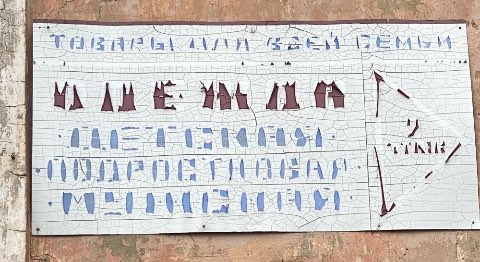 ТОВАРЫ ДЛЯ ВСЕЙ СЕМЬИ
ОДЕЖДА
· ДЕТСКАЯ
· ПОДРОСТКОВАЯ ·
2
ЭТАЖ